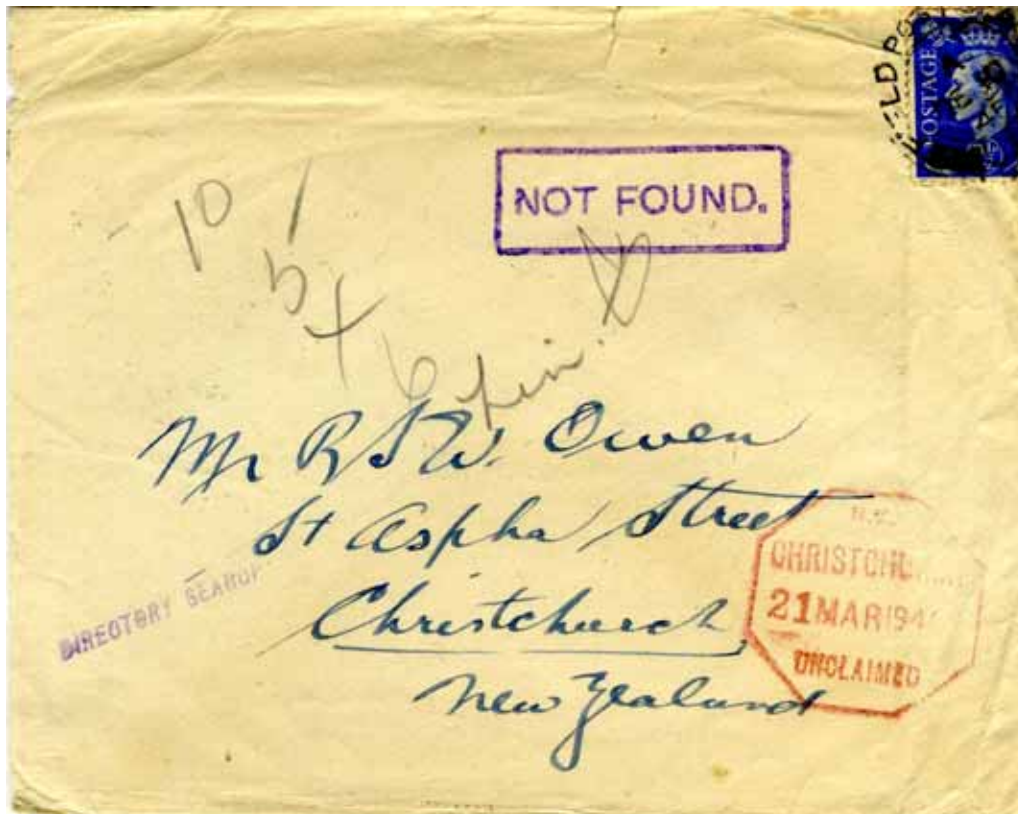 POSTAGE
NOT FOUND.
10 /
Mr R S W. Owen
St Aspha Street
Christchurch
New Zealand
DIRECTORY SEARCH
N.Z.
CHRISTCHURCH
21 MAR 194
UNCLAIMED